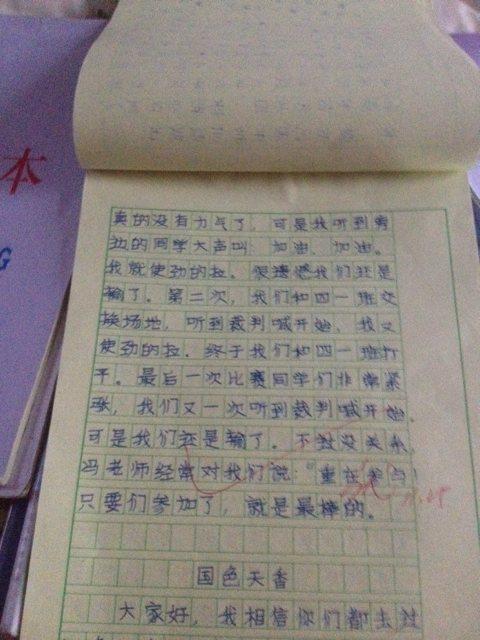 本
G
真的没有力气了，可是我听到旁
边的同学大声叫：加油，加油。
我就使劲的拉。很遗憾我们还是
输了。第二次，我们和四一班交
换场地，听到裁判喊开始，我又
使劲的拉。终于我们和四一班打
平。最后一次比赛同学们非常紧
张，我们又一次听到裁判喊开始。
可是我们还是输了。不过没关系，
冯老师经常对我们说：“重在参与！
只要们参加了，就是最棒的。
国色天香
大家好，我相信你们都去过